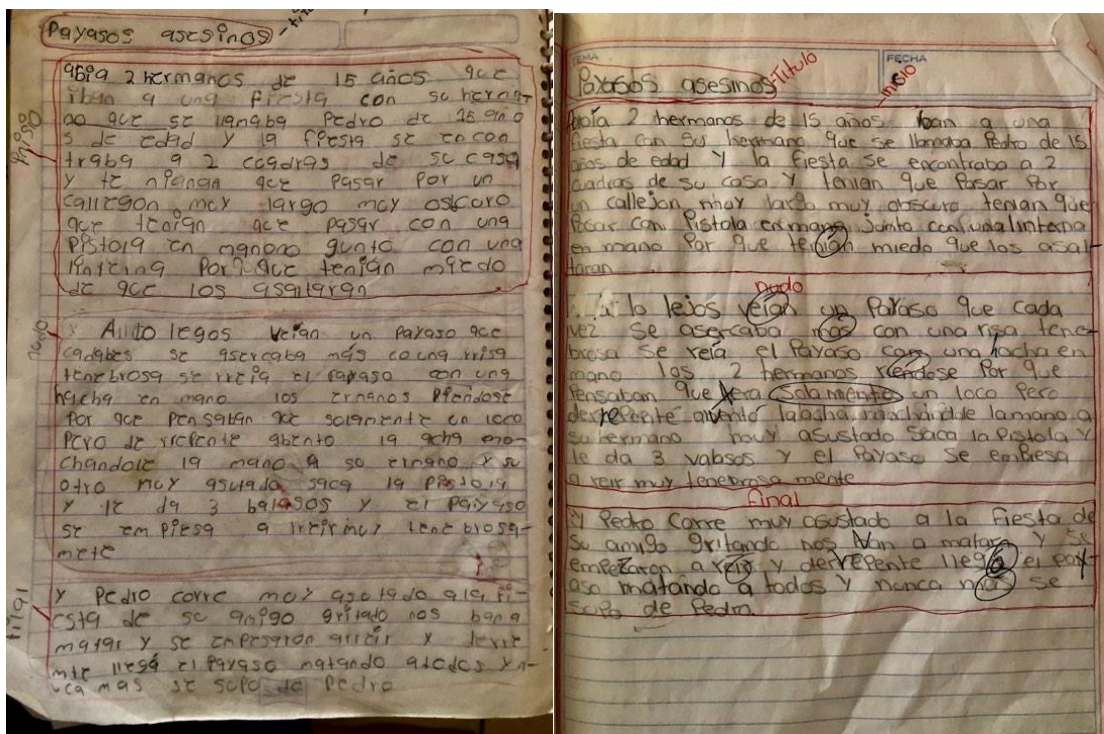 Payasos asesinos
abia 2 hermanos de 15 años que
iban a una fiesta con su herma-
no que se llamaba Pedro de 15 año
s de edad y la fiesta se encon
traba a 2 cuadras de su casa
y te nianan que pasar por un
callegon muy largo muy oscuro
que tenian que pasar con una
Pistola en manono gunto con una
linterna Por que tenian miedo
de que los asaltaran
nudo
Y Alo legos veian un Payaso que
cadabes se asercaba más co una rrisa
tenebrosa se rreia el payaso con una
hacha en mano los ermanos riendose
Por que Pensaban que solamente un loco
Pero de rrepente abento la acha mo-
chandole la mano a so ermano y su
otro muy asutado saca la Pistola
y le da 3 balasos y el Payaso
se em Piesa a rreir muy tenebrosa-
mete
final
y Pedro corre muy asutado a la fi-
esta de su amigo gritado nos ban a
matar y se enpesaron arreir y
mte llega el Payaso matando a todos y n-
uca mas se supo de Pedro
TEMA
FECHA
Payasos asesinos
Titulo
inicio
Abía 2 hermanos de 15 años iban a una
fiesta con su hermano que se llamaba Pedro de 15
años de edad y la fiesta se encontraba a 2
cuadras de su casa y tenian que Pasar Por
un callejon muy largo muy obscuro tenian que
Pasar con Pistola en mano junto con una linterna
en mano Por que tenían miedo que los asal-
taran
nudo
a lo lejos veían un Payaso que cada
vez se asercaba mas con una risa tene-
brosa se reía el Payaso con una hacha en
mano los 2 hermanos riendose Por que
Pensaban que era solamente un loco Pero
derrepente avento la acha mochandole la mano a
su hermano muy asustado saca la Pistola y
le da 3 vabsos y el Payaso se empiesa
a reir muy tenebrosa mente
Final
y Pedro corre muy asustado a la fiesta de
su amigo gritando nos Van a matara y se
empezaron a reir y derrepente llega el pay-
aso matando a todos y nunca mas se
supo de Pedro